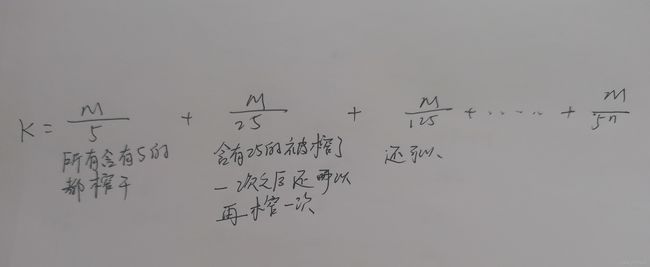 K = M/5 + M/25 + M/125 + ...... + M/5n
所有含有5的
都榨干
含有25的被榨了
一次之后还可以
再榨一次
还可以、